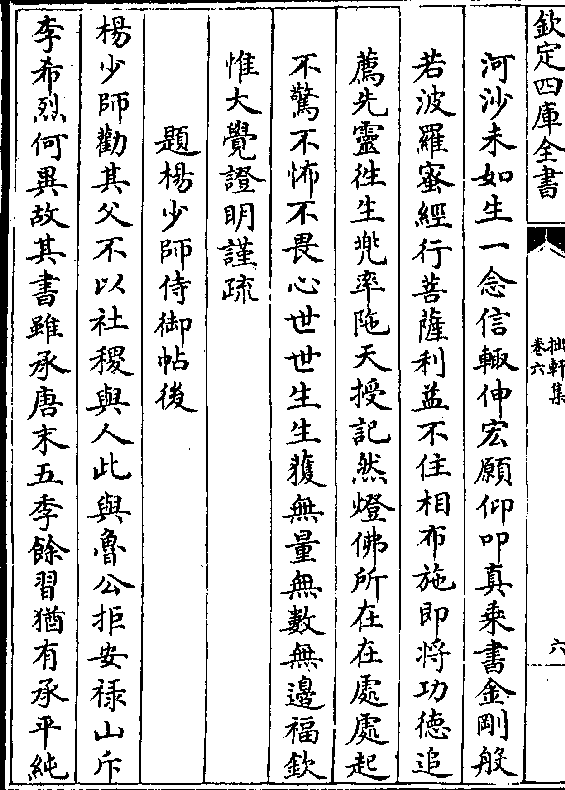 欽定四庫全書
拙軒集
卷六
六
河沙未如生一念信輙伸宏願仰叩真乘書金剛般
若波羅蜜經行菩薩利益不住相布施即將功德追
薦先靈徃生兠率陁天授記然燈佛所在在處處起
不驚不怖不畏心世世生生獲無量無數無邊福欽
惟大覺證明謹疏
題楊少師侍御帖後
楊少師勸其父不以社稷與人此與魯公拒安禄山斥
李希烈何異故其書雖承唐末五季餘習猶有承平純